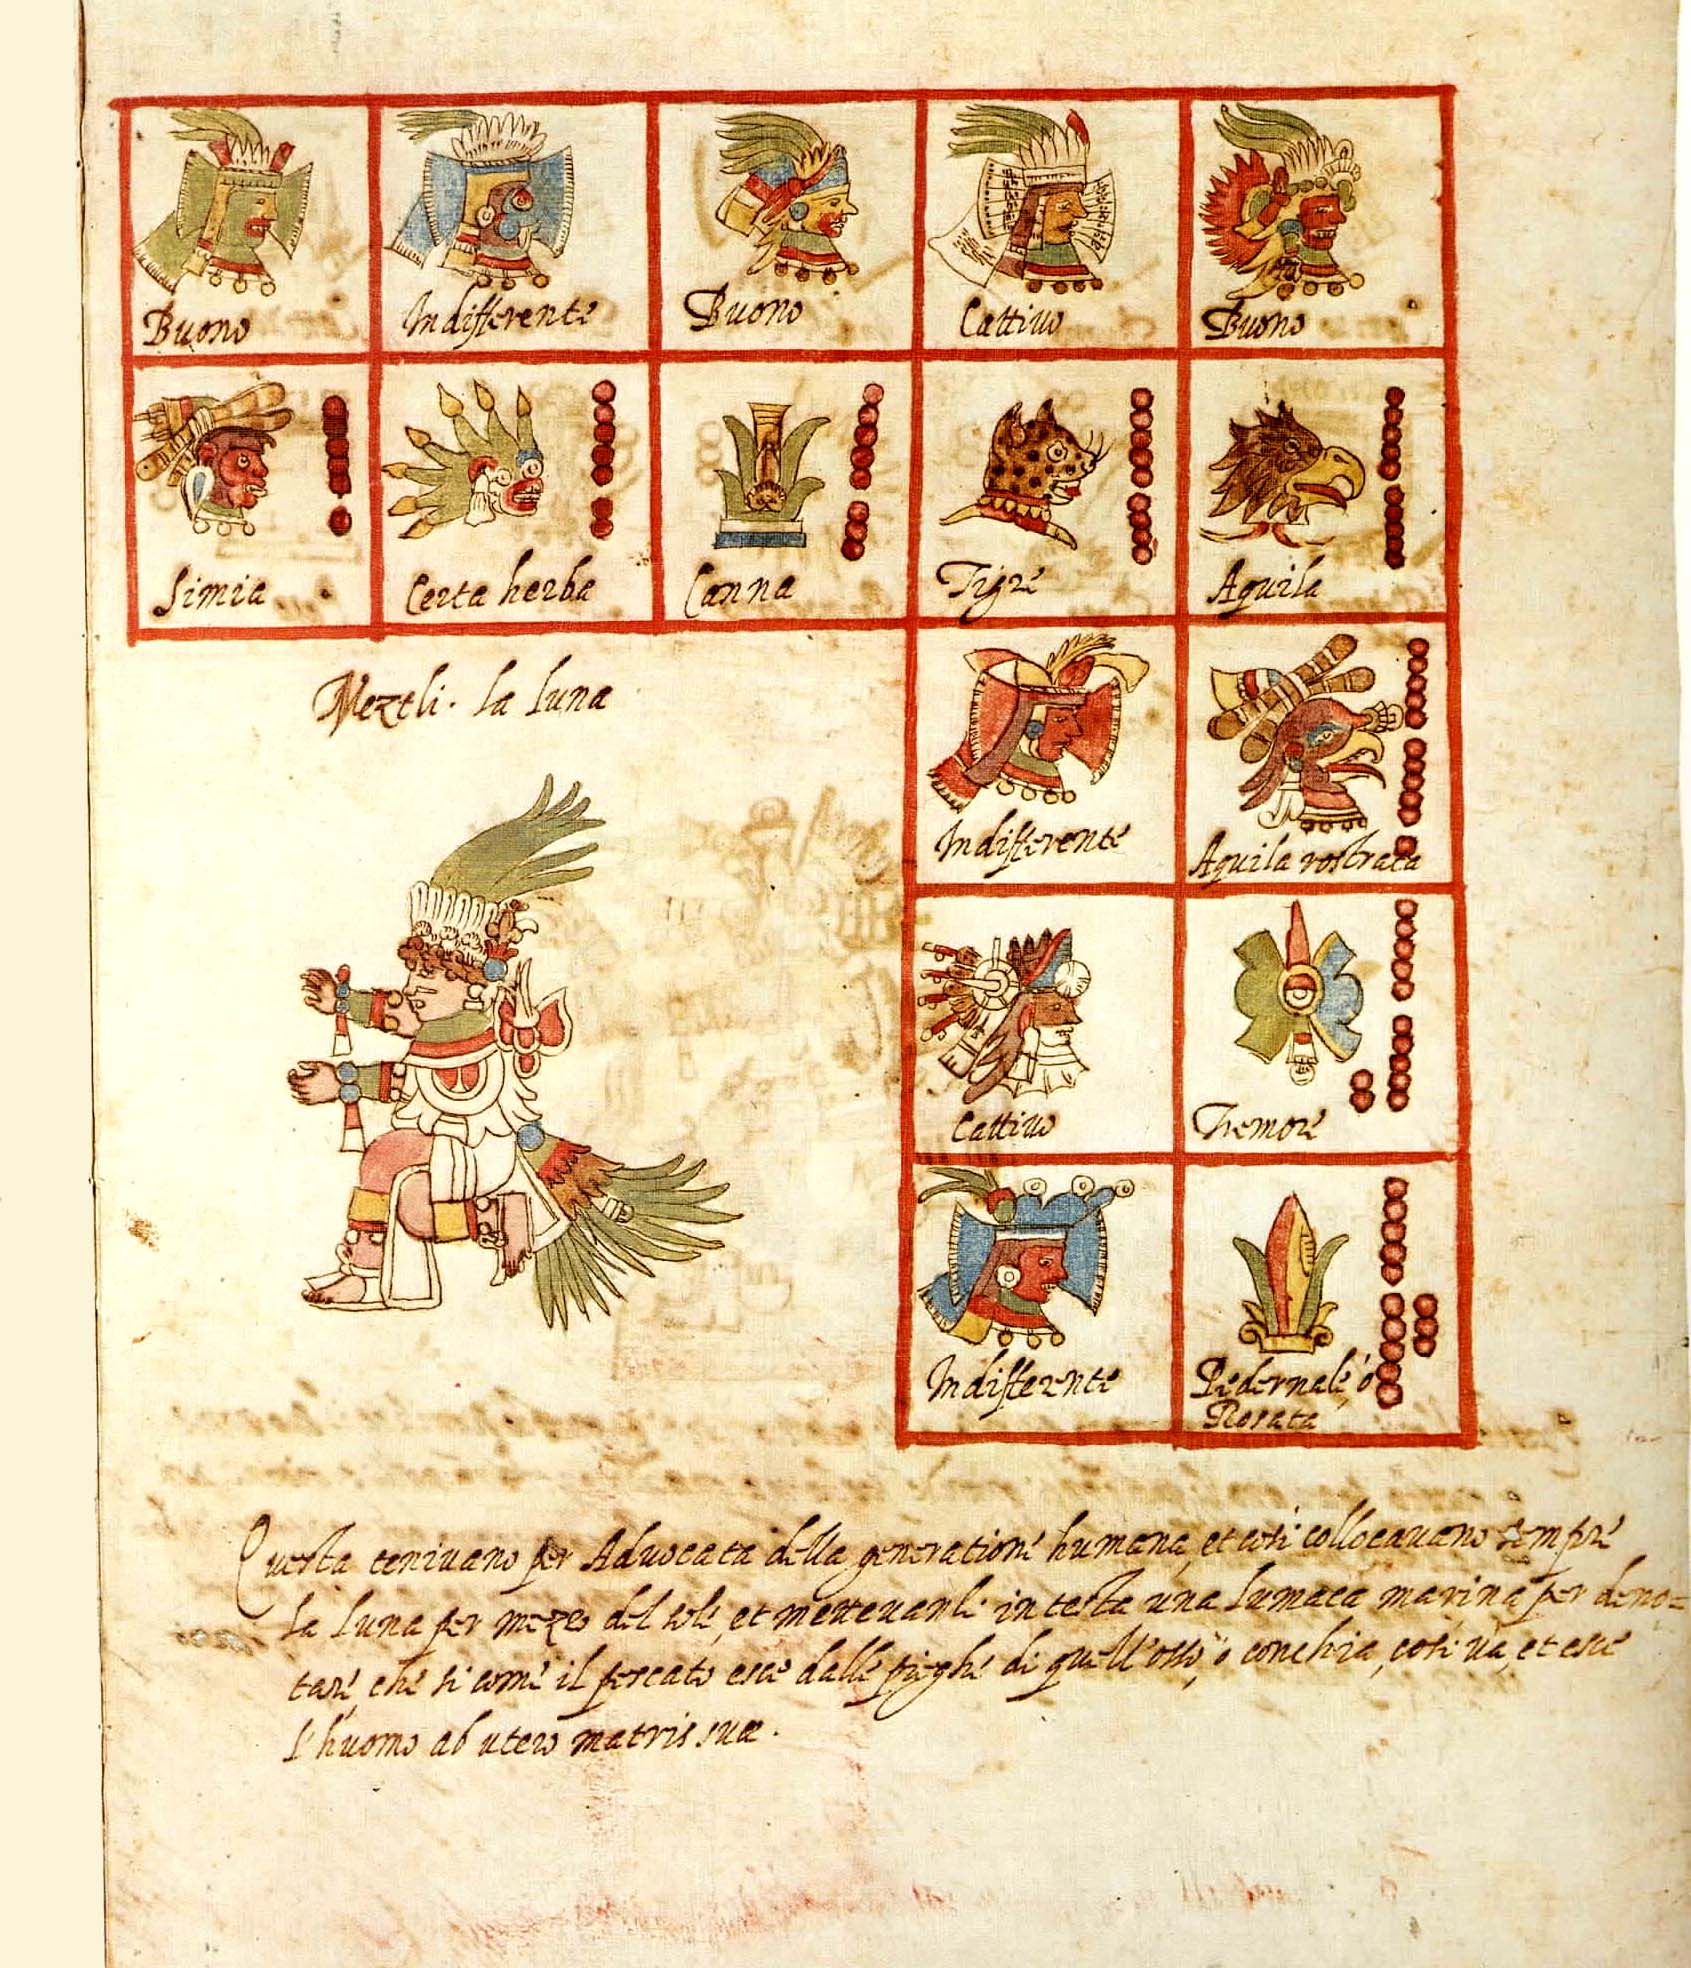 Buono Indifferente Buono Cattiuo Buono
Simia Certa herba Canna Tigre Aquila
Meztli. la luna
Indifferente Aquila rostrata
Cattiuo Tremore
Indifferente Pedernale, ó
Rosata
Questa teniuano per Aduocata della generatione humana, et cosi collocauano sempre
la luna per mezo del sole, et metteuanli in testa una lumaca marina per deno=
tare, che si come il pescato esce dalle pieghe di quell'osso, o conchia, cosi ua, et esce
l'huomo ab utero matris suæ.